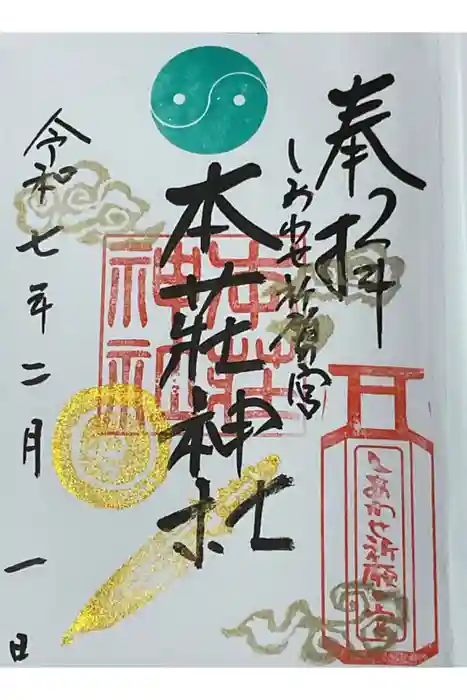 奉拝
しあわせ祈願宮
本荘神社
令和七年二月一日
本荘神社
しあわせ祈願宮